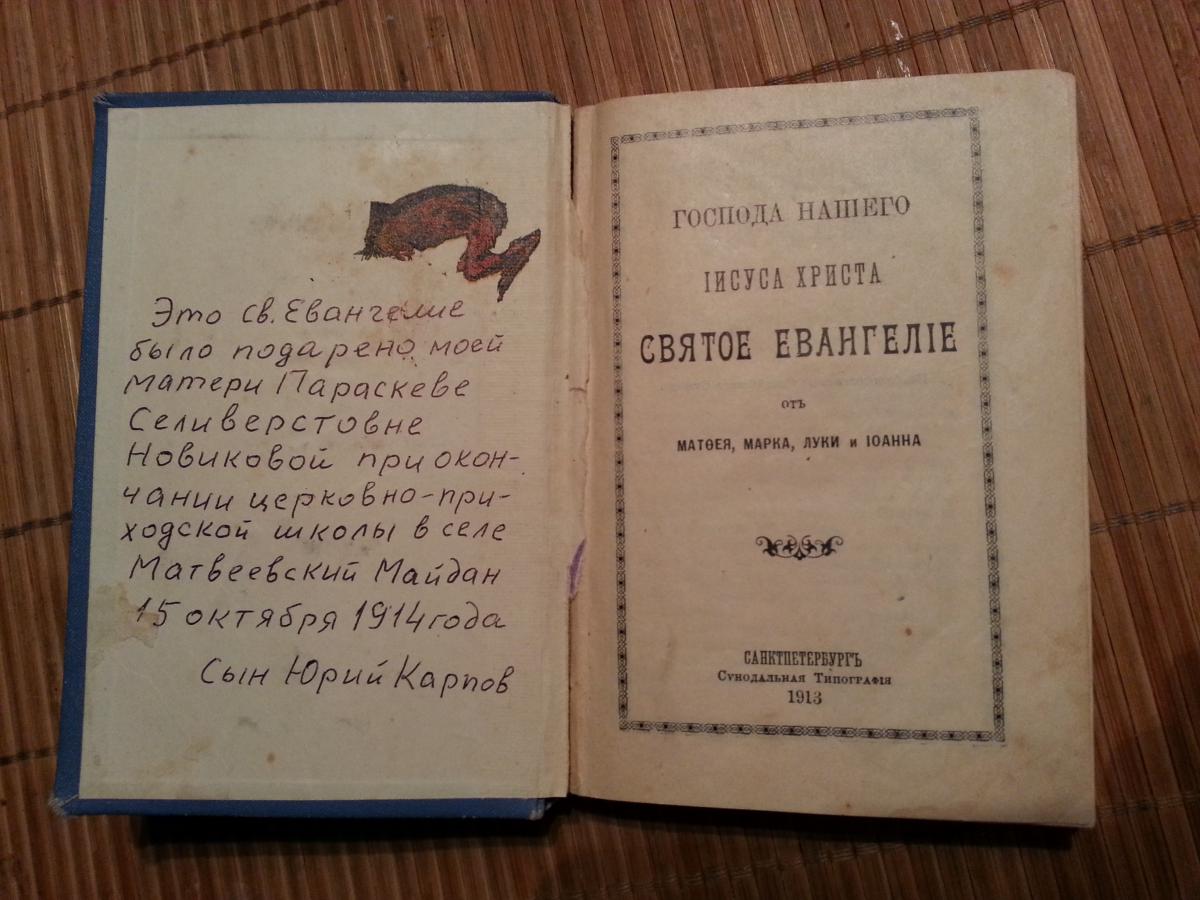 Это св. Евангелие
было подарено моей
матери Параскеве
Селиверстовне
Новиковой при окон-
чании церковно-при-
ходской школы в селе
Матвеевский Майдан
15 октября 1914 года
Сын Юрий Карпов
ГОСПОДА НАШЕГО
ІИСУСА ХРИСТА
СВЯТОЕ ЕВАНГЕЛІЕ
отъ
МАТѲЕЯ, МАРКА, ЛУКИ и ІОАННА
САНКТПЕТЕРБУРГЪ
Сѵнодальная Типографія
1913